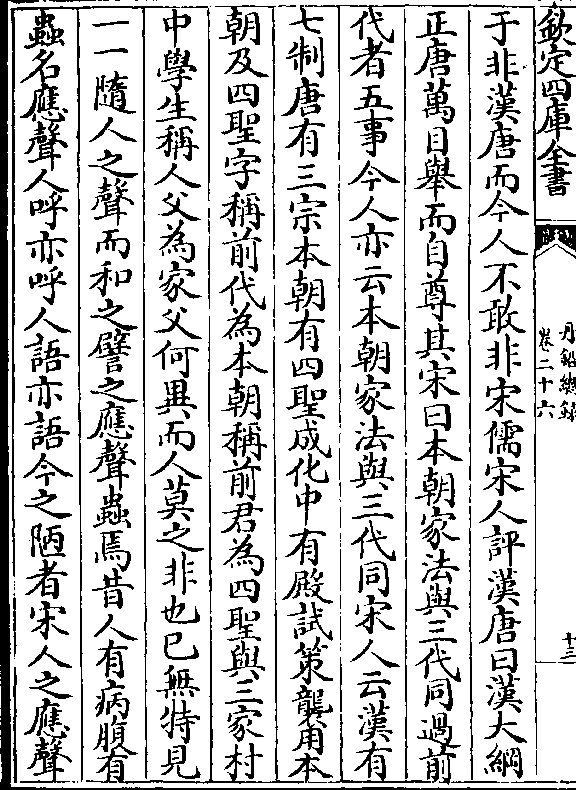 欽定四庫全書
丹鉛總録
卷二十六
十三
于非漢唐而今人不敢非宋儒宋人評漢唐曰漢大綱
正唐萬目舉而自尊其宋曰本朝家法與三代同過前
代者五事今人亦云本朝家法與三代同宋人云漢有
七制唐有三宗本朝有四聖成化中有殿試策襲用本
朝及四聖字稱前代為本朝稱前君為四聖與三家村
中學生稱人父為家父何異而人莫之非也已無特見
一一隨人之聲而和之譬之應聲蟲焉昔人有病腹有
蟲名應聲人呼亦呼人語亦語今之陋者宋人之應聲